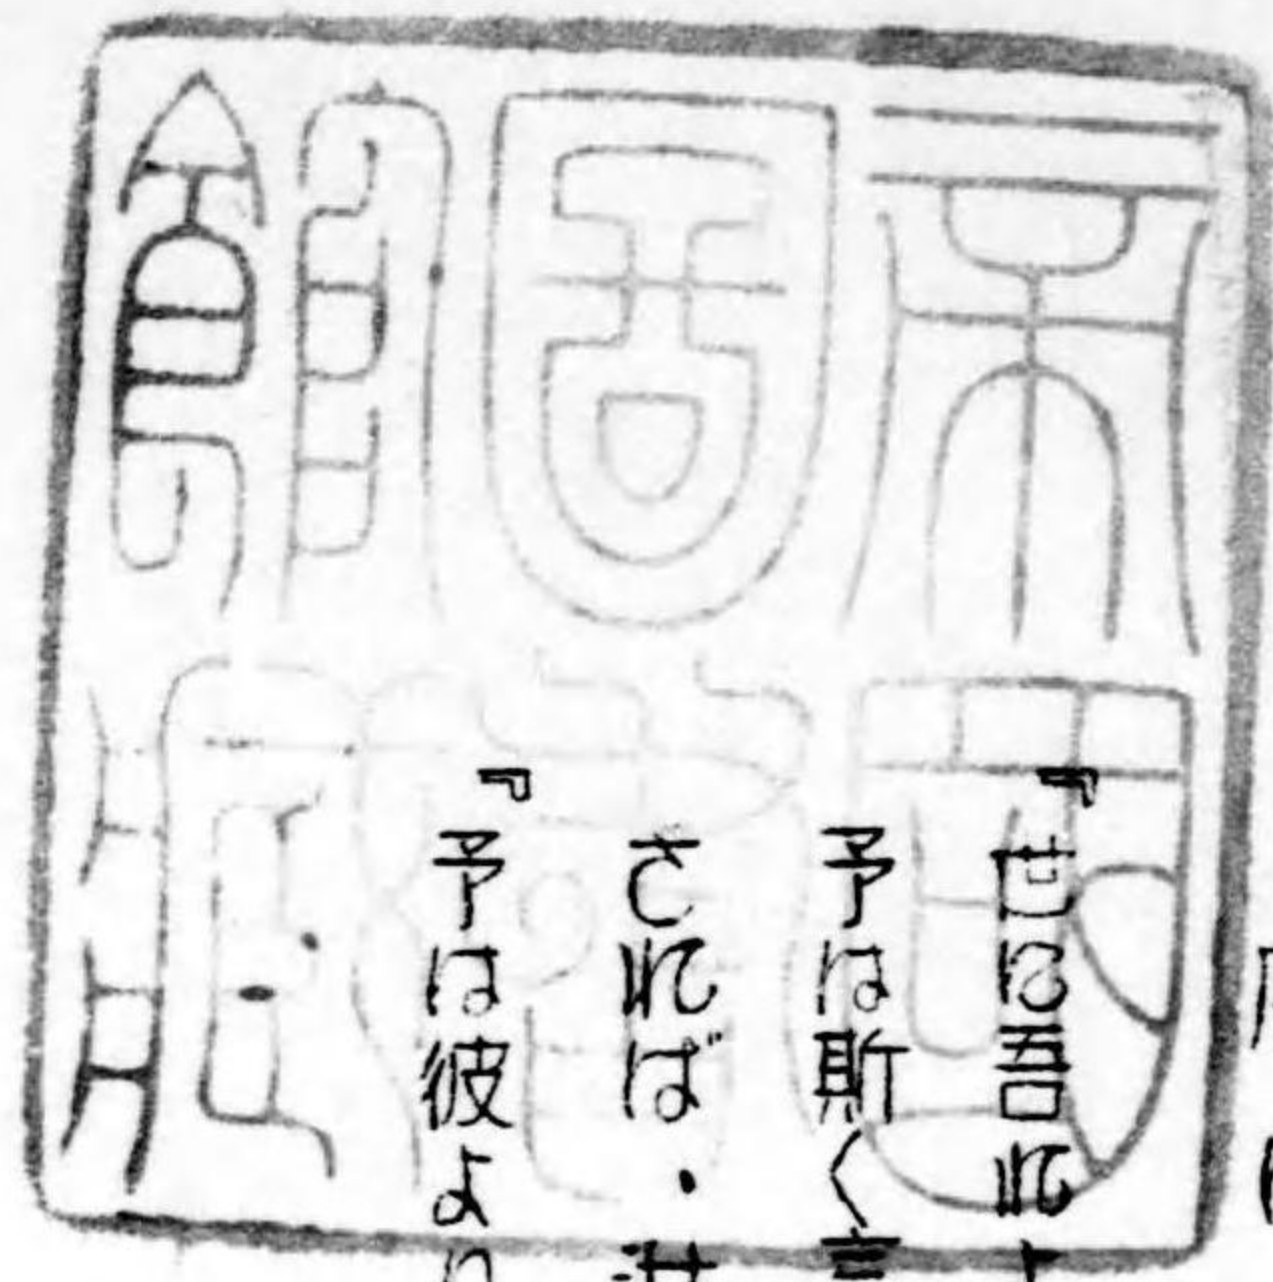 帝國
圖書
館藏
『世に吾れ
予は斯く言
されば・
『予は彼より